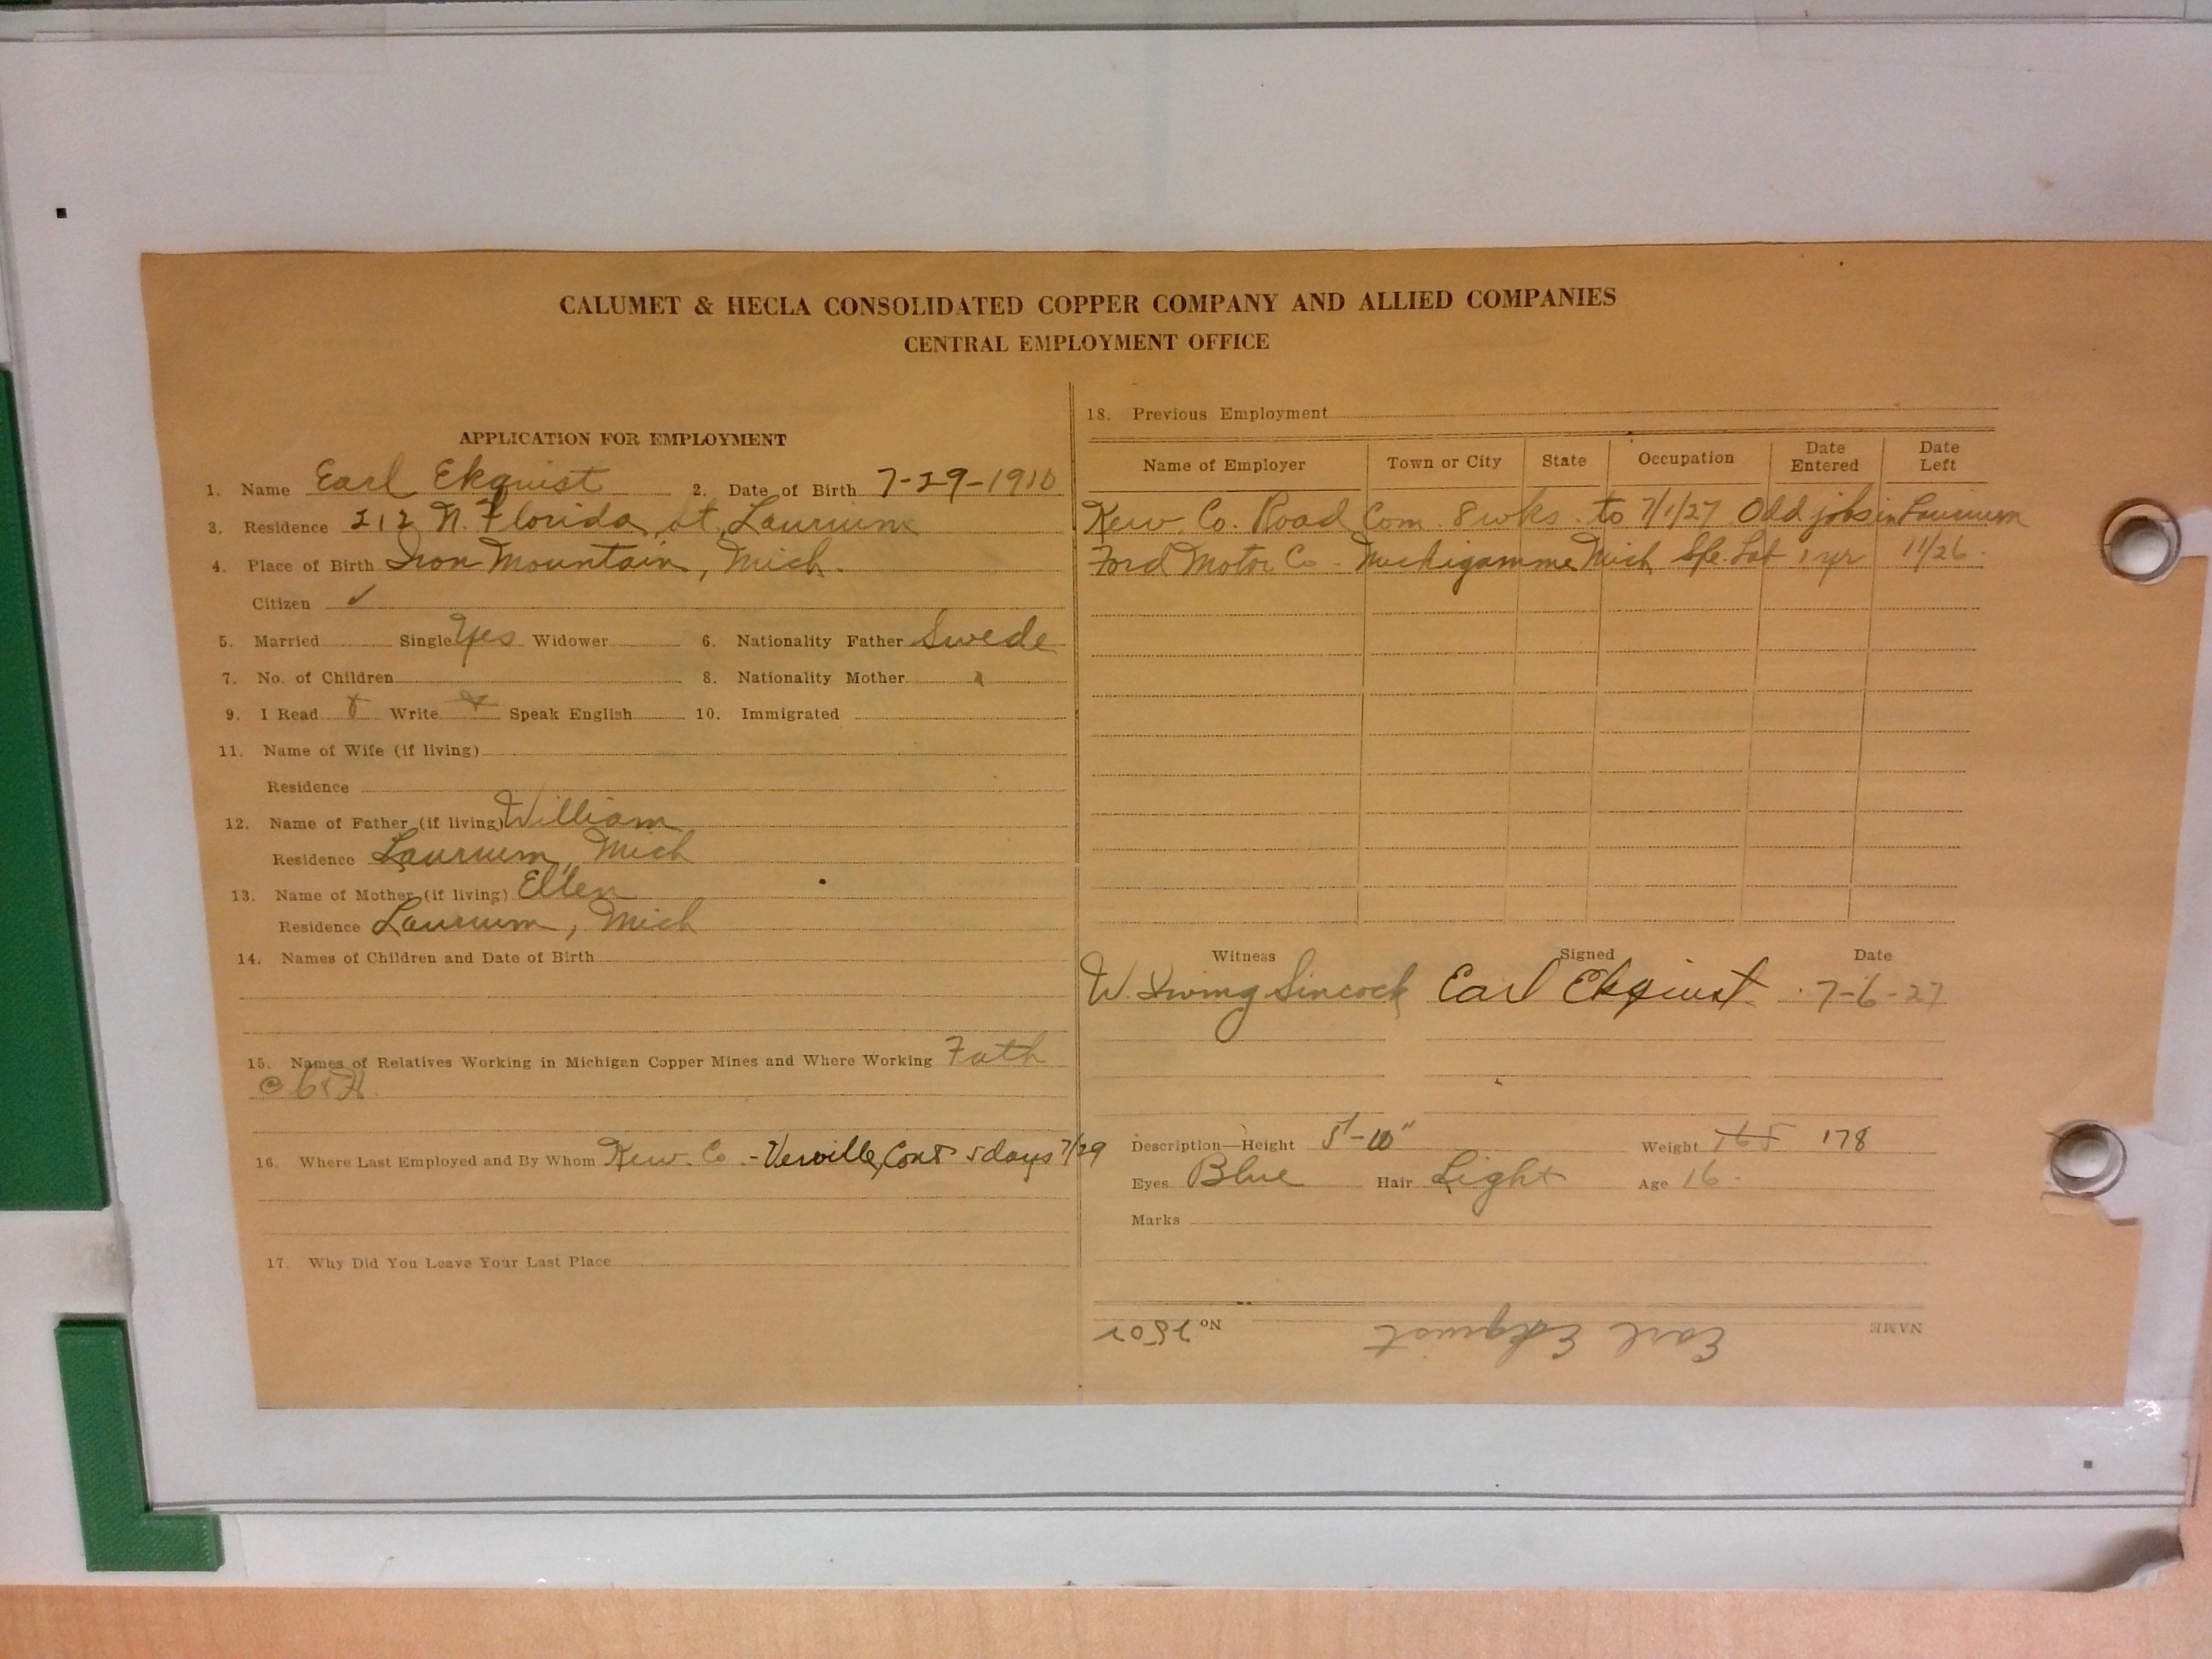 CALUMET & HECLA CONSOLIDATED COPPER COMPANY AND ALLIED COMPANIES
CENTRAL EMPLOYMENT OFFICE
APPLICATION FOR EMPLOYMENT
1. Name Earl Ekquist 2. Date of Birth 7-29-1910
3. Residence 212 N. Florida st Laurium
4. Place of Birth Iron Mountain, Mich.
Citizen ✓
5. Married Single Yes Widower 6. Nationality Father Swede
7. No. of Children 8. Nationality Mother
9. I Read Write Speak English 10. Immigrated
11. Name of Wife (if living)
Residence
12. Name of Father (if living) William
Residence Laurium, Mich
13. Name of Mother (if living) Ellen
Residence Laurium, Mich
14. Names of Children and Date of Birth
15. Names of Relatives Working in Michigan Copper Mines and Where Working Fath
C & H
16. Where Last Employed and By Whom Kew. Co. - Verville, Cont 5 days 7/29
17. Why Did You Leave Your Last Place
18. Previous Employment
Name of Employer Town or City State Occupation Date Entered Date Left
Kew. Co. Road Com. 8 wks. to 7/1/27 Odd jobs in Laurium
Ford Motor Co. Michigamme Mich 1 yr 11/26
Witness Signed Date
W. Irving Sincock Earl Ekquist 7-6-27
Description—Height 5'-10" Weight 165 178
Eyes Blue Hair Light Age 16
Marks
NAME Earl Ekquist No